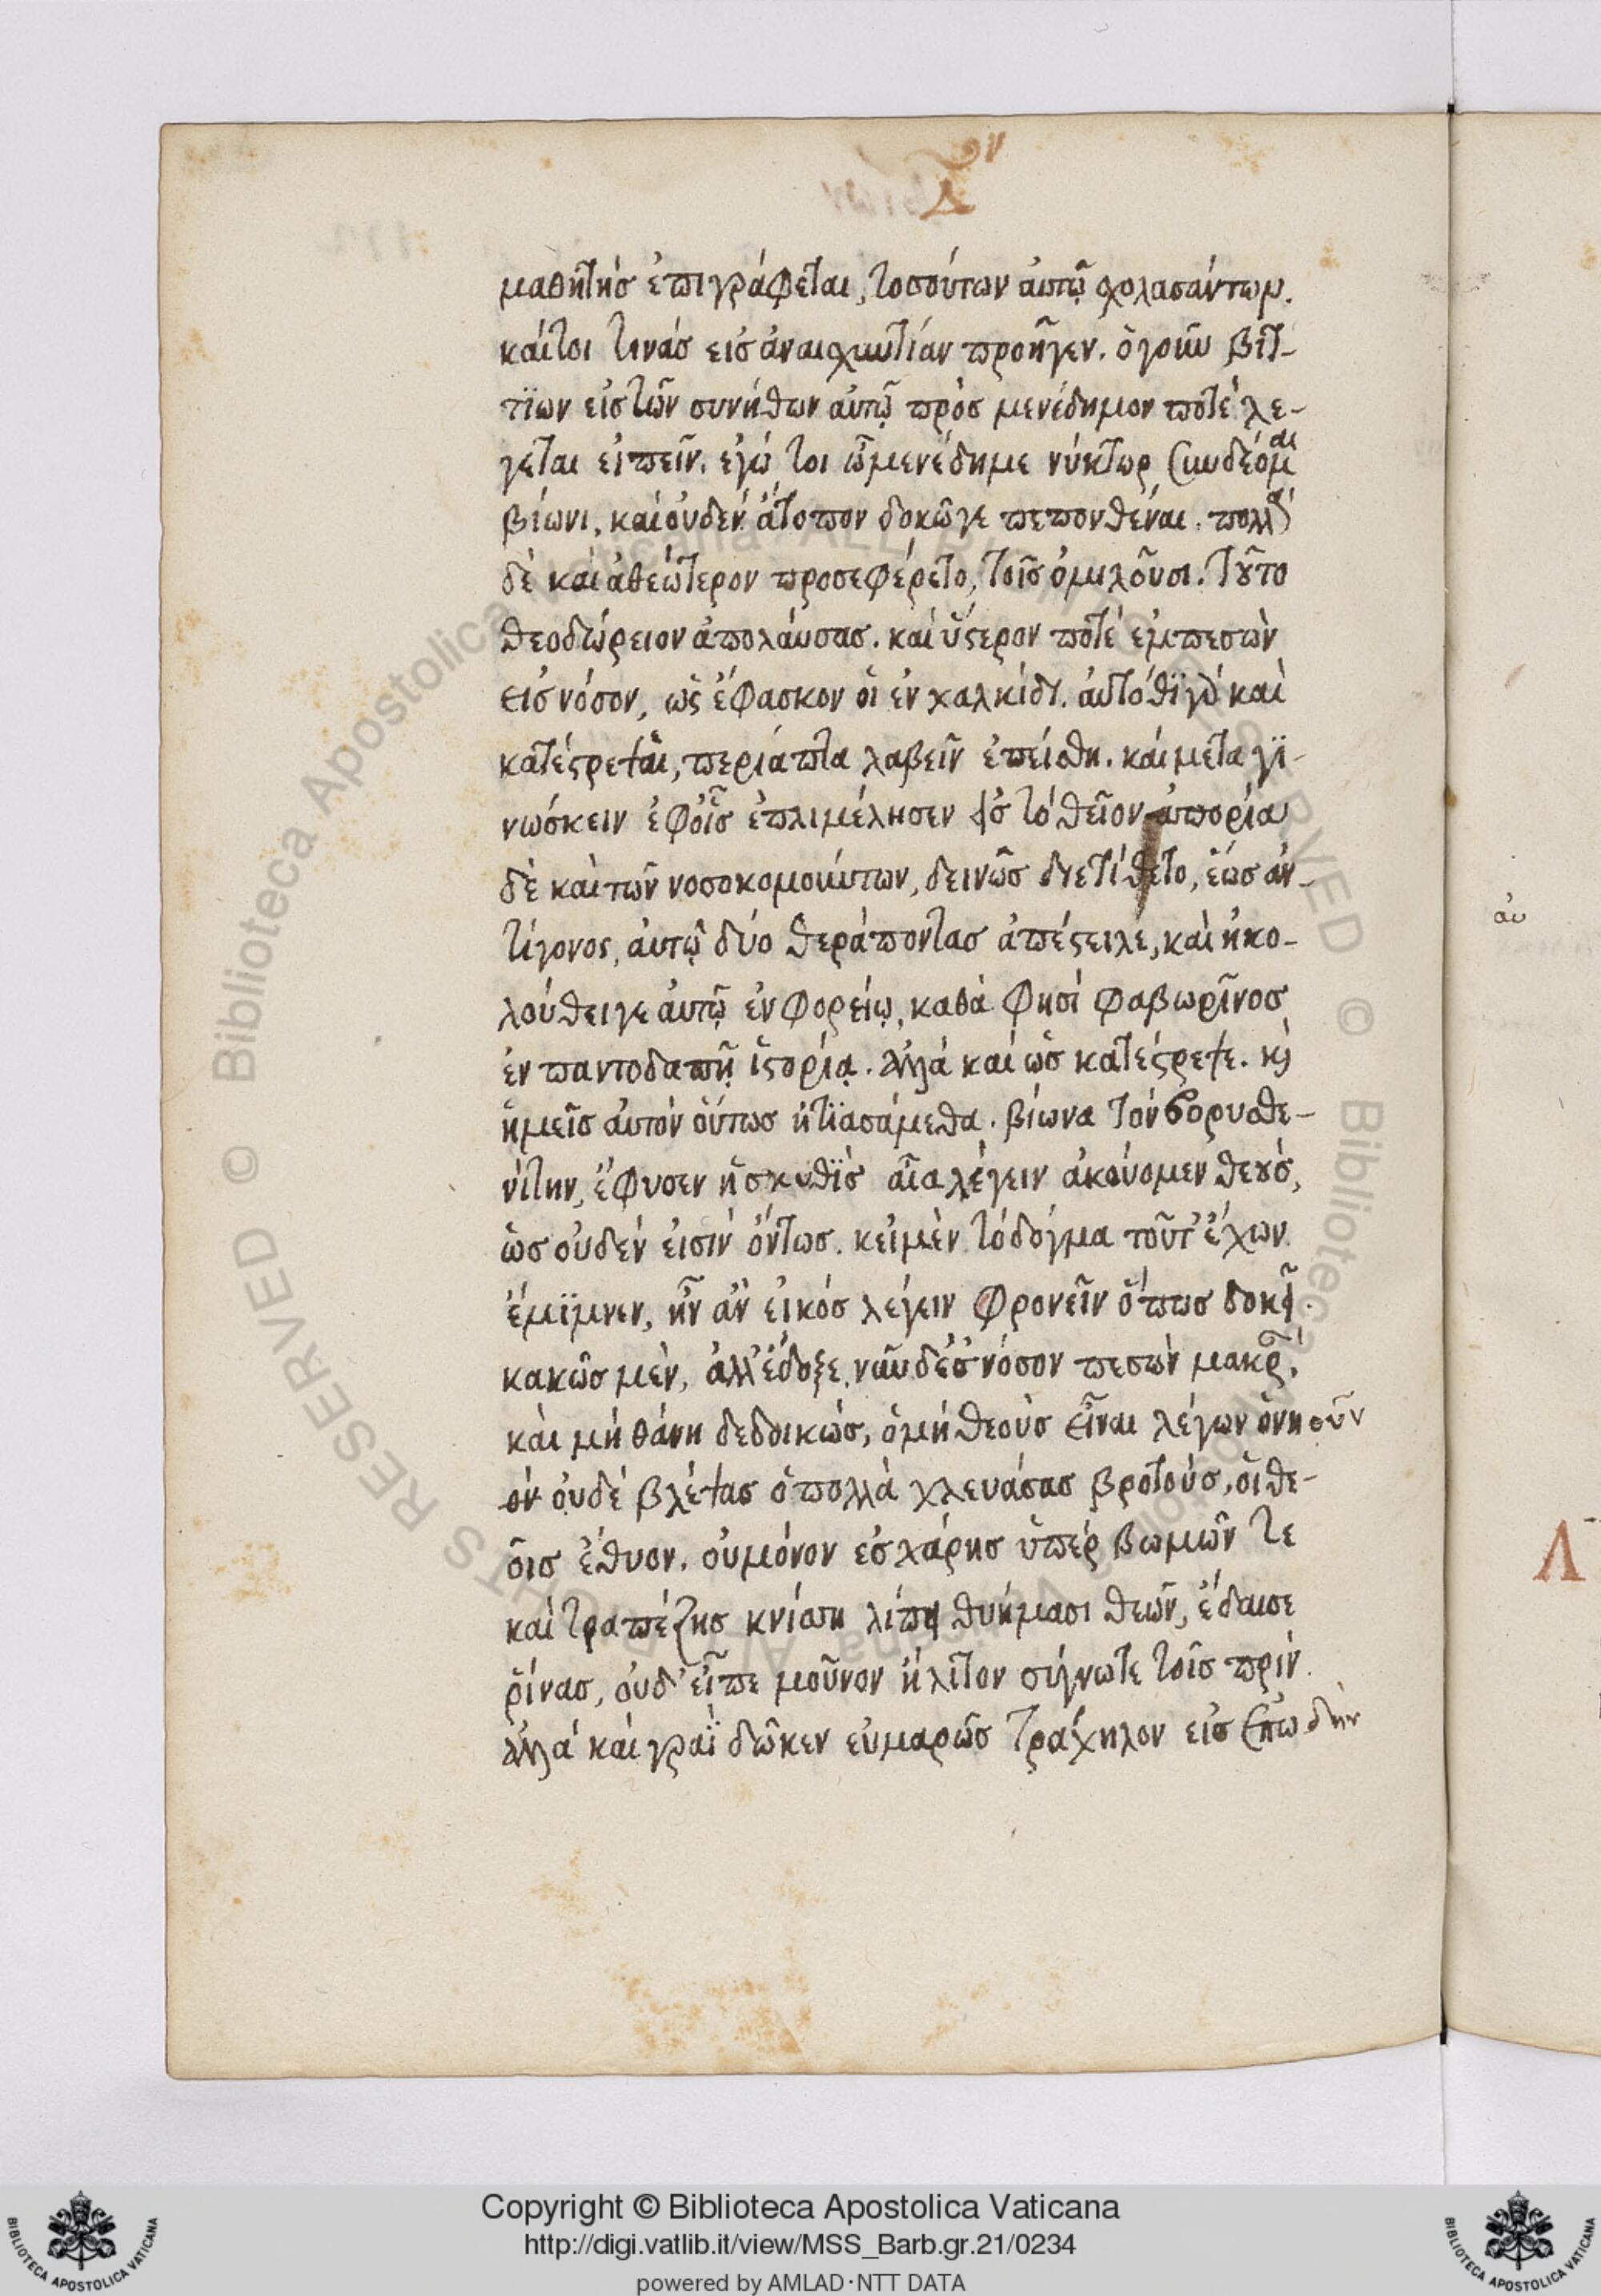 Δ ον
μαθητὴσ ἐπιγράφεται, τοσούτων ἀυτῷ σχολασάντων.
κάιτοι τινάσ εισ ἀναισχυντίαν προῆγεν. ὁγοῦν βητ-
τϊων εἰστῶν συνήθων ἀυτῷ πρὸσ μενέδημον ποτὲ λε-
γεται ἐιπεῖν. ἐγώ τοι ὦμενέδημε νύκτωρ συνδέομαι
βίωνι, καὶοὐδεν ἄτοπον δοκῶγε πεπονθέναι. πολλὰ
δὲ καὶ ἀθεώτερον προσεφέρετο, τοῖσ ὁμιλοῦσι. τοῦτο
θεοδώρειον ἀπολάυσασ. καὶ ὕστερον ποτὲ ἐμπεσὼν
εισ νόσον, ὡς ἔφασκον ὁι ἐν χαλκίδι. ἀυτόθϊ γὰρ καὶ
κατέστρεψαι, περίαπτα λαβεῖν ἐπείσθη. κάι μετα γϊ-
νώσκειν ἐφὁῖσ ἐπλιμέλησεν εἰσ τὸ θεῖον ἀπορία
δὲ καὶ τῶν νοσοκομούντων, δεινῶσ διετίθετο, ἕωσ ἀν-
τίγονος, ἀυτῷ δύο θεράποντασ ἀπέστειλε, καὶ ἠκο-
λούθειγε ἀυτῷ ἐν φορείῳ, καθὰ φησὶ φαβωρῖνοσ
ἐν παντοδαπῇ ἱστορίᾳ. ἀλλά καὶ ὡσ κατέστρεψε. κὶ
ἡμεῖσ ἀυτὸν ὁύτωσ ἠτϊασάμεθα. βίωνα τὸν βορυσθε-
νίτην, ἔφυσεν ἡσκυθϊσ αῖα λέγειν ἀκούομεν θεοὺσ,
ὡσ οὐδὲν ἐισὶν ὄντωσ. κεἰμὲν τὸδόγμα τοῦτ' ἔχων
ἔμϊμνεν, ἦν ἂν ἐικόσ λέγειν φρονεῖν ὅπωσ δοκεῖ.
κακῶσ μὲν, ἀλλ' ἔδοξε. νῦν δὲ ἐσ νόσον πεσὼν μακρὰν,
κὰι μὴ θάνη δεδοικὼσ, ὁμὴ θεοὺσ εἶναι λέγων ὁνη οῦν
ὸν ὀυδὲ βλέψασ ὁπολλὰ χλευάσασ βροτοὺσ, ὁιθε-
ὁισ ἔθυον. ὀυμόνον ἐσχάρησ ὑπὲρ βωμῶν τε
καὶ τραπέζησ κνίση λίπη θυήμασι θεῶν, ἔδαισε
ῥίνασ, ὀυδ' εἶπε μοῦνον ἤλιτον σύγνωτε τοῖσ πρὶν
ἀλλά κὰι γραῒ δῶκεν εὐμαρῶσ τράχηλον εἰσ ἐπωδὴν
ἀυ
Λ
Copyright © Biblioteca Apostolica Vaticana
http://digi.vatlib.it/view/MSS_Barb.gr.21/0234
powered by AMLAD·NTT DATA